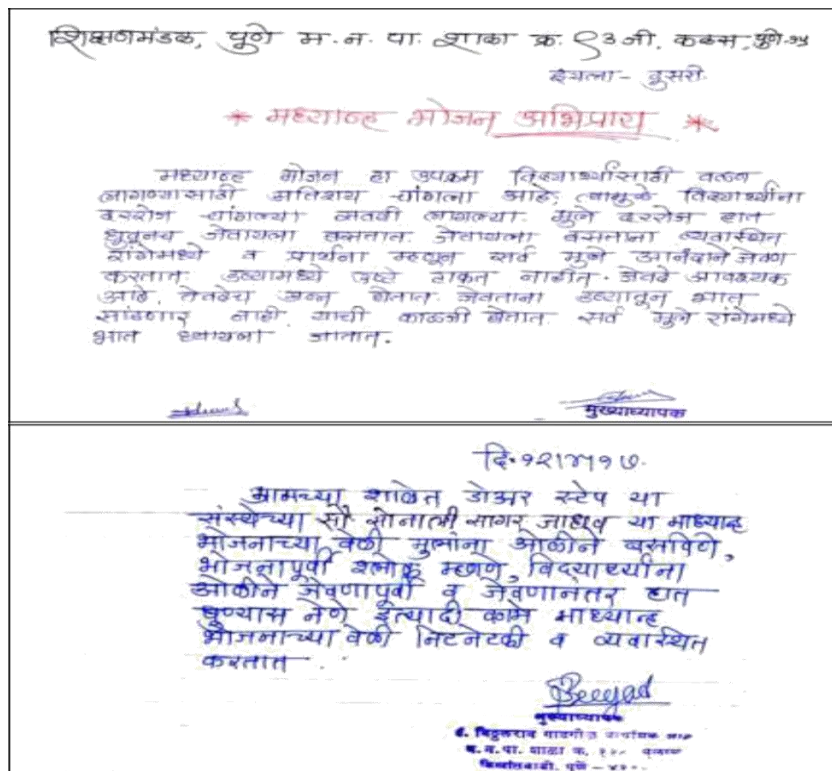 शिक्षणमंडळ, पुणे म.न.पा. शाळा क्र. ९३ जी. कळस, पुणे-१५
इयत्ता - दुसरी.
* मध्यान्ह भोजन अभिप्राय *
मध्यान्ह भोजन हा उपक्रम विद्यार्थ्यांसाठी वळण
लागण्यासाठी अतिशय चांगला आहे. त्यामुळे विद्यार्थ्यांना
दररोज चांगल्या सवयी लागल्या. मुले दररोज हात
धुवूनच जेवायला बसतात. जेवायला बसताना व्यवस्थित
रांगेमध्ये व प्रार्थना म्हणून सर्व मुले आनंदाने जेवण
करतात. डब्यामध्ये उष्टे टाकत नाहीत. जेवढे आवश्यक
आहे, तेवढेच अन्न घेतात. जेवताना डब्यातून भात
सांडणार नाही याची काळजी घेतात. सर्व मुले रांगेमध्ये
भात घ्यायला जातात.
मुख्याध्यापक
दि. १२।४।१७.
आमच्या शाळेत डोअर स्टेप या
संस्थेच्या सौ सोनाली सागर जाधव या माध्यान्ह
भोजनाच्या वेळी मुलांना ओळीने बसविणे,
भोजनापूर्वी श्लोक म्हणणे, विद्यार्थ्यांना
ओळीने जेवणापूर्वी व जेवणानंतर हात
धुण्यास नेणे इत्यादी कामे माध्यान्ह
भोजनाच्या वेळी निटनेटकी व व्यवस्थित
करतात.
मुख्याध्यापक
विठ्ठलराव गाडगीळ
म.न.पा. शाळा क्र.
पुणे